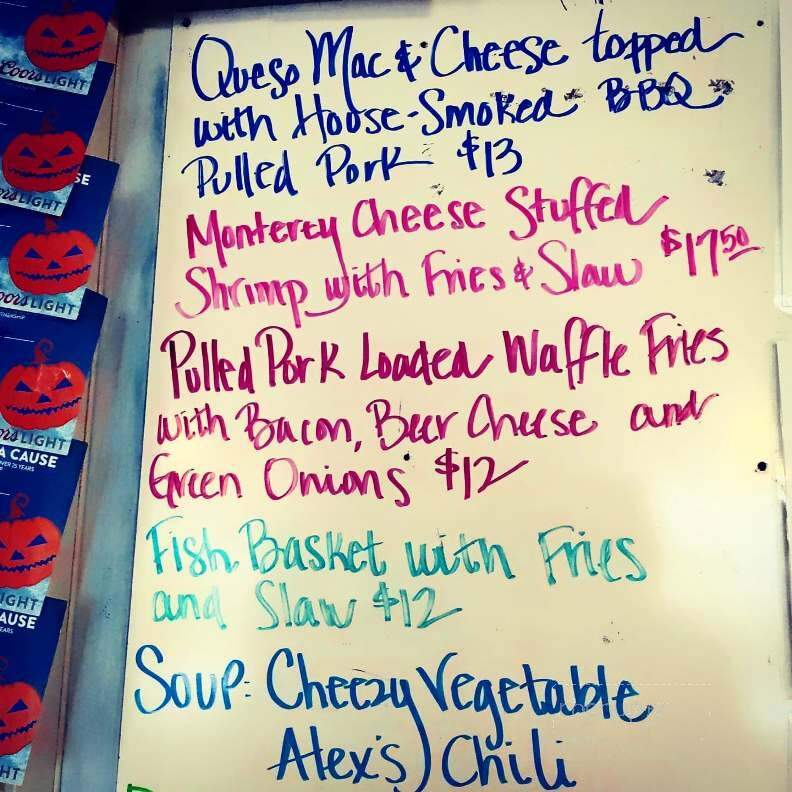 Queso Mac & Cheese topped
with House-Smoked BBQ
Pulled Pork $13
Monterey Cheese Stuffed
Shrimp with Fries & Slaw $17.50
Pulled Pork Loaded Waffle Fries
with Bacon, Beer Cheese and
Green Onions $12
Fish Basket with Fries
and Slaw $12
Soup: Cheezy Vegetable
Alex's Chili
Coors LIGHT
SE
LIGHT
LIGHT
LIGHT
A CAUSE
OVER 25 YEARS
IGHT
AUSE
EARS
HT